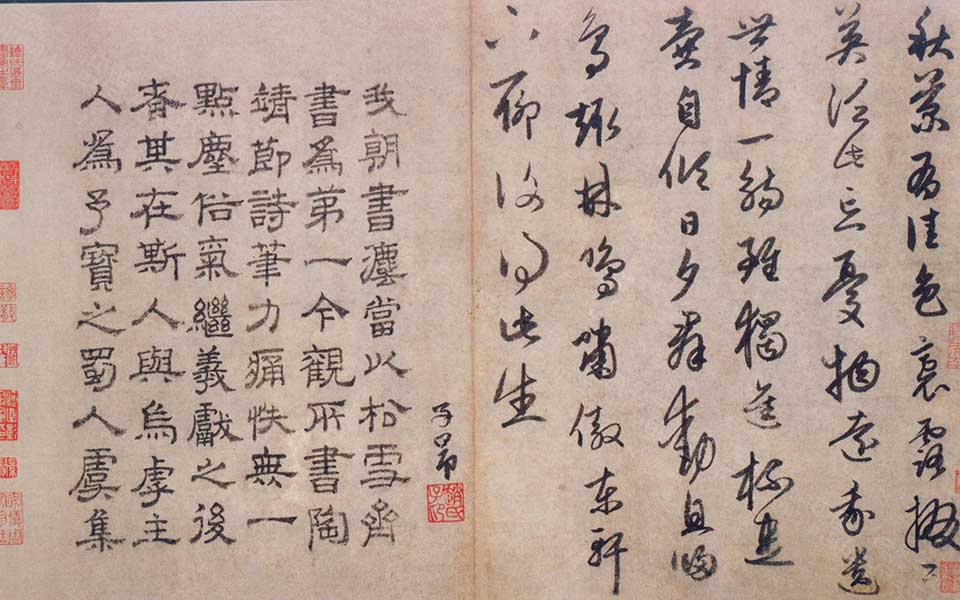 秋菊有佳色裛露掇其
英汎此忘憂物遠我遺
世情一觴雖獨進杯盡
壺自傾日夕羣動息歸
鳥趨林鳴嘯傲東軒
下聊復得此生
子昂
趙氏子昂
我朝書灋當以松雪齋
書爲第一今觀所書陶
靖節詩筆力痛快無一
點塵俗氣繼羲獻之後
者其在斯人與烏虖主
人爲予寶之蜀人虞集